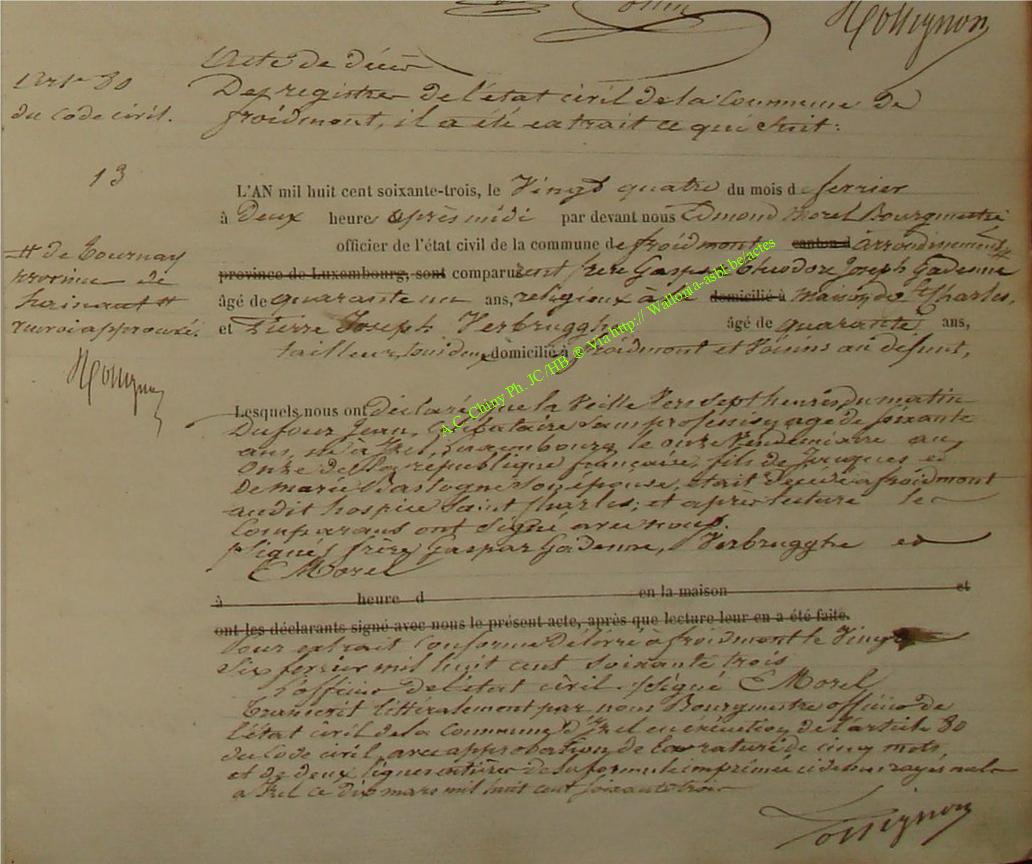 Rossignon
Acte de décès
art 80
Des registres de l'état civil de la Commune de
du Code civil.
froidmont, il a été extrait ce qui suit:
13
L'AN mil huit cent soixante-trois, le Vingt quatre du mois de fevrier
à Deux heure après midi par devant nous Edmond Morel Bourgmestre
officier de l'état civil de la commune de froidmont canton d arrondissement #
# de Tournay
province de
hainaut #
renvoi approuvé.
Rossignon
province de Luxembourg, sont comparurent frère Gaspar Théodore Joseph Gadenne
âgé de quarante un ans, religieux à la domicilié à maison de St Charles,
et Pierre Joseph Verbrugghe âgé de quarante ans,
tailleur, tous deux domicilié à froidmont et Voisins au défunt,
Lesquels nous ont déclaré que la veille Vers sept heures du matin
Dufour Jean, Célibataire sans profession agé de soixante
ans, né à Izel, Luxembourg, le onze Vendemiaire an
onze de la république française, fils de Jacques et
de marie Bastogne son épouse, était décédé a froidmont
audit hospice Saint Charles; et après lecture les
Comparans ont signé avec nous.
signés frère Gaspar Gadenne, Verbrugghe et
E Morel
à heure d en la maison et
ont les déclarants signé avec nous le présent acte, après que lecture leur en a été faite.
Pour extrait Conforme délivré à froidmont le Vingt
Six fevrier mil huit cent soixante trois
L'officier de l'état civil. signé E Morel
Transcrit littéralement par nous Bourgmestre officier de
l'état civil de la Commune d'Izel en exécution de l'article 80
du Code civil, avec approbation de la rature de cinq mots,
et de deux lignes entières de la formule imprimée ci dessus rayés nuls
a Izel ce dix mars mil huit cent soixante trois
Rossignon
A.C. Chiny Ph. JC /HB ® Via http:// Wallonia-asbl.be/actes